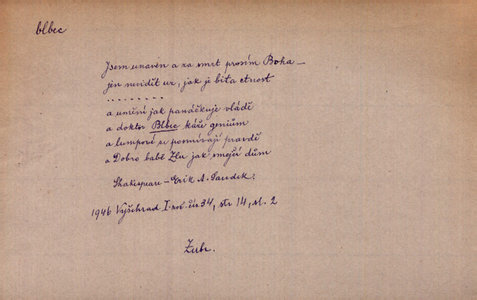 blbec
Jsem unaven a za smrt prosím Boha –
jen nevidět už, jak je bita ctnost
.........
a umění jak panáčkuje vládě
a doktor Blbec káže geniům
a lumpové se posmívají pravdě
a Dobro babě Zlu jak smejčí dům
Shakespeare – Erik A. Saudek:
1946 Vyšehrad I. roč. čís 34, str 14, sl. 2
Zubr.